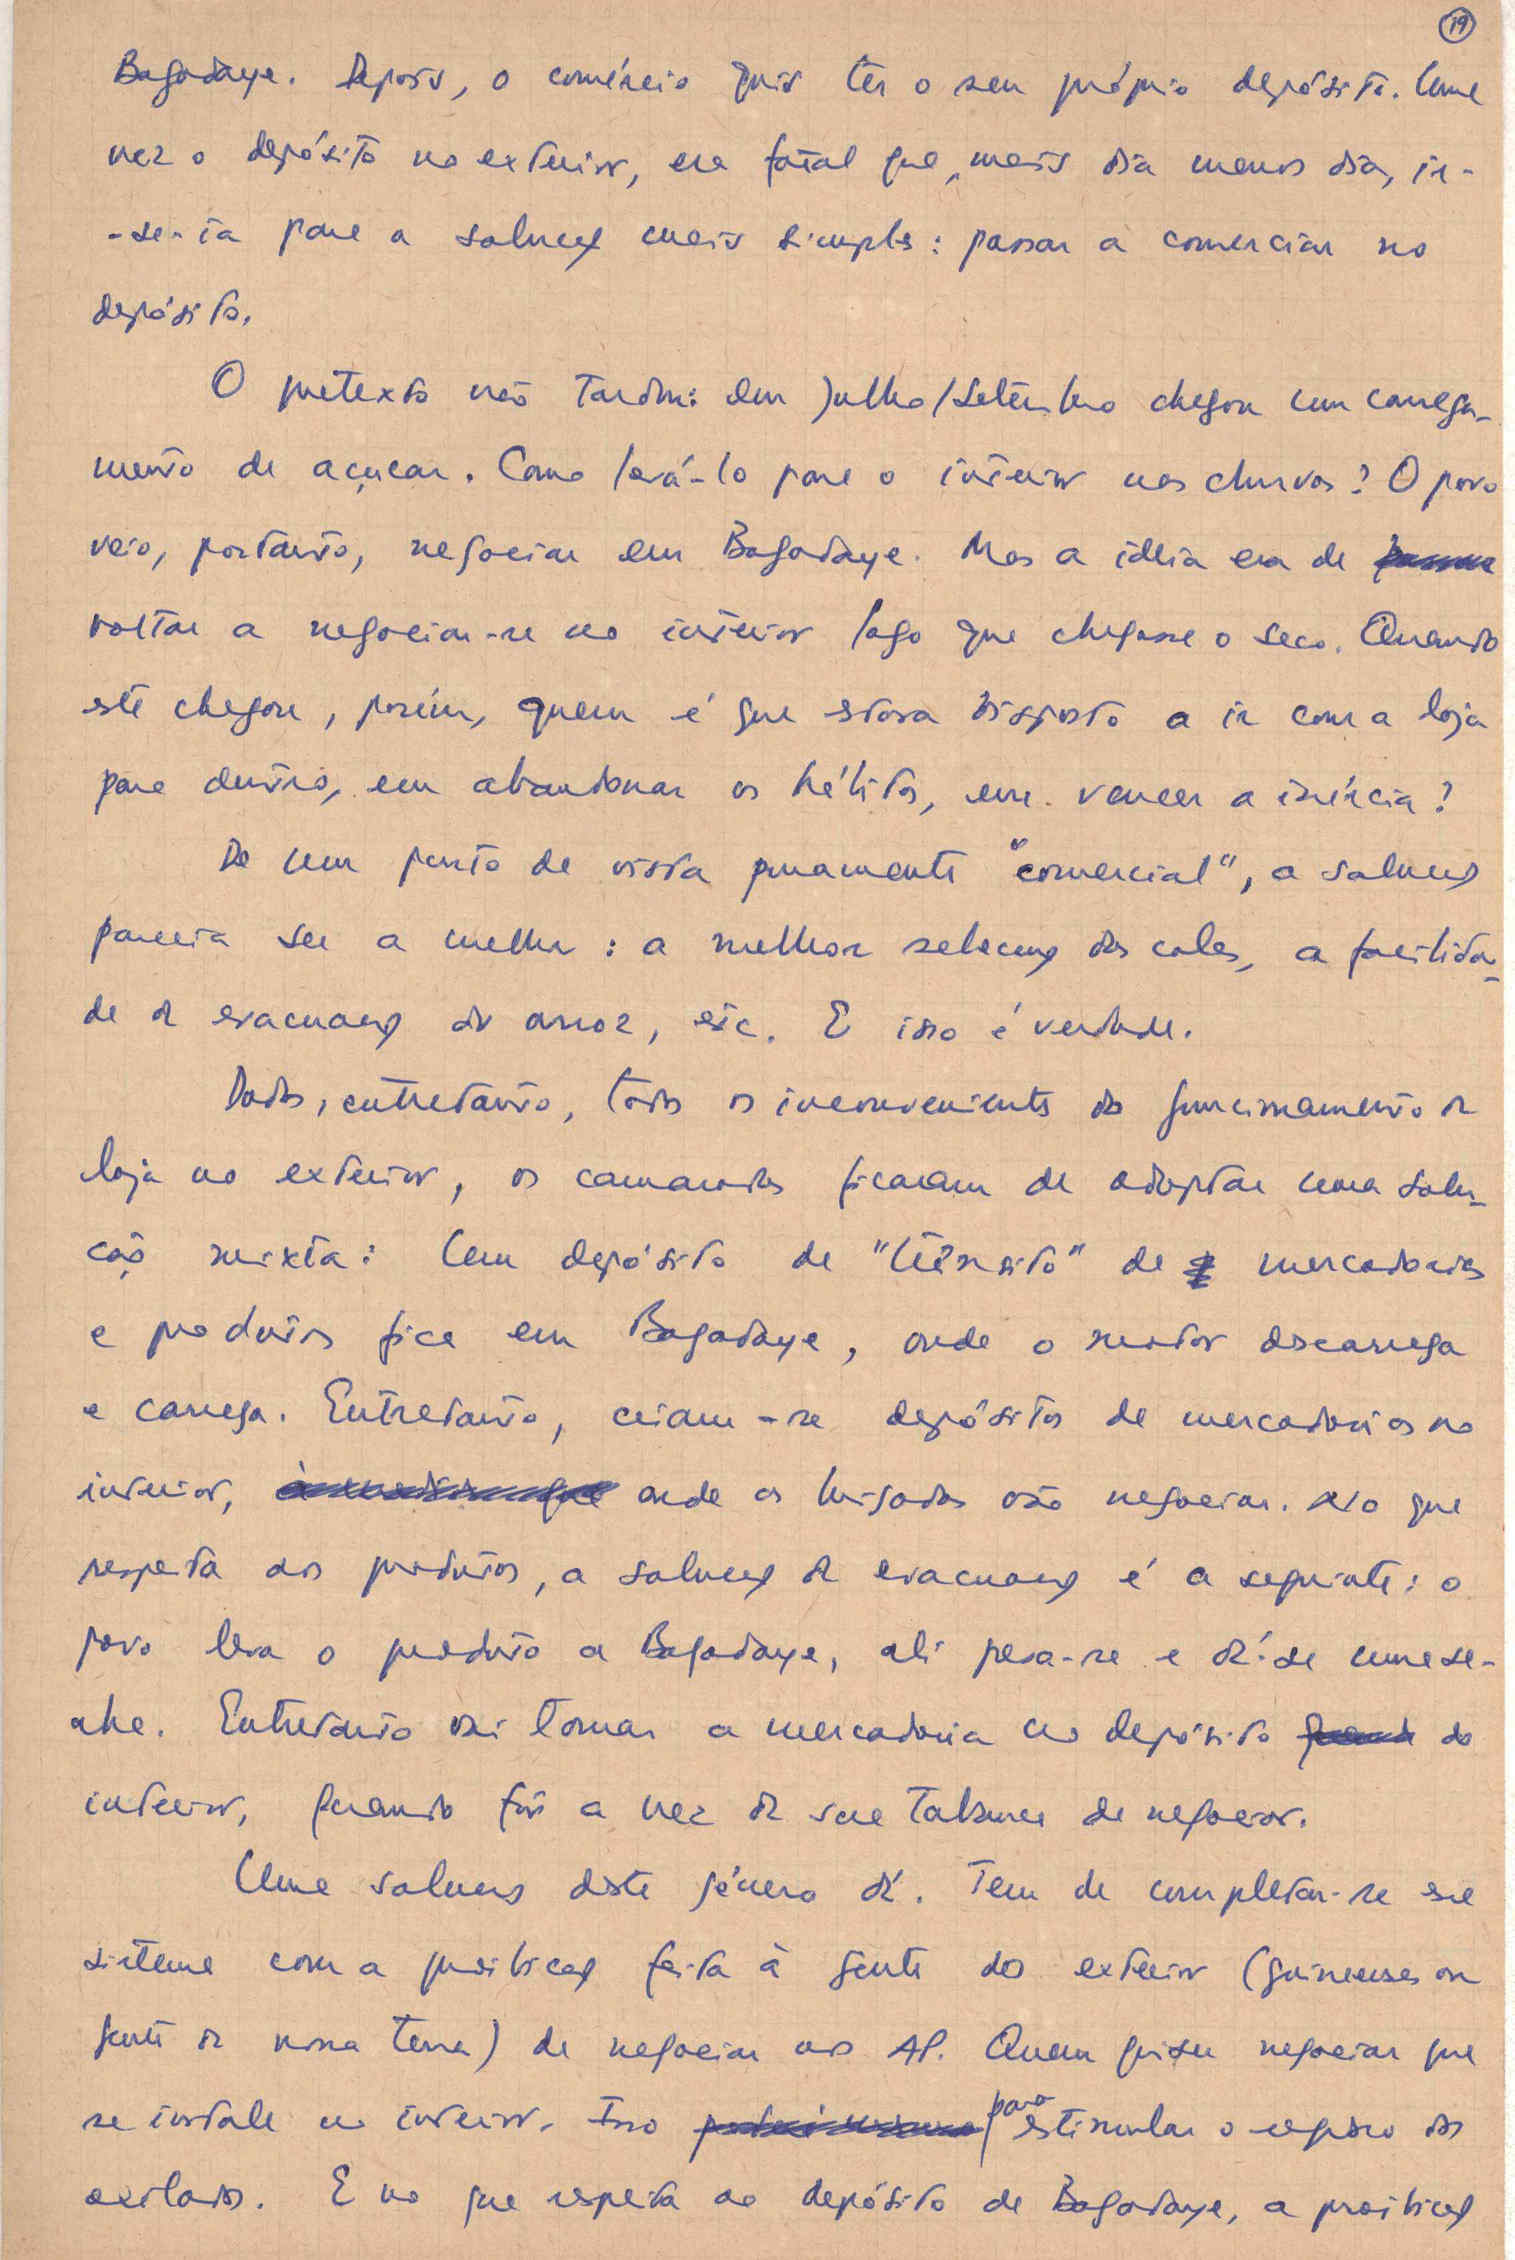 19
Bagadaye. Depois, o comércio quis ter o seu próprio depósito. Uma
vez o depósito no exterior, era fatal que, mais dia menos dia, ir-
-se-ia para a solução mais simples: passar a comerciar no
depósito.
O pretexto não tardou: em Julho/Setembro chegou um carrega-
mento de açucar. Como levá-lo para o interior nas chuvas? O povo
veio, portanto, negociar em Bagadaye. Mas a ideia era de
voltar a negociar-se no interior logo que chegasse o seco. Quando
este chegou, porém, quem é que estava disposto a ir com a loja
para dentro, em abandonar os hábitos, em vencer a inércia?
De um ponto de vista puramente "comercial", a solução
parecia ser a melhor: a melhor selecção das colas, a facilida-
de da evacuação do arroz, etc. E isso é verdade.
Dados, entretanto, todos os inconvenientes do funcionamento da
loja no exterior, os camaradas ficaram de adoptar uma solu-
ção mixta: Um depósito de "trânsito" de mercadorias
e produtos fica em Bagadaye, onde o motor descarrega
e carrega. Entretanto, criam-se depósitos de mercadorias no
interior, onde as brigadas vão negociar. No que
respeita aos produtos, a solução da evacuação é a seguinte: o
povo leva o produto a Bagadaye, ali pesa-se e dá-se uma se-
nha. Entretanto vai tomar a mercadoria no depósito do
interior, quando fôr a vez da sua tabanca de negociar.
Uma solução deste género dá. Tem de completar-se esse
sistema com a proibição feita à gente do exterior (guineenses ou
gente da nossa terra) de negociar nos AP. Quem quiser negociar que
se instale no interior. Isso para estimular o regresso dos
exilados. E no que respeita ao depósito de Bagadaye, a proibição